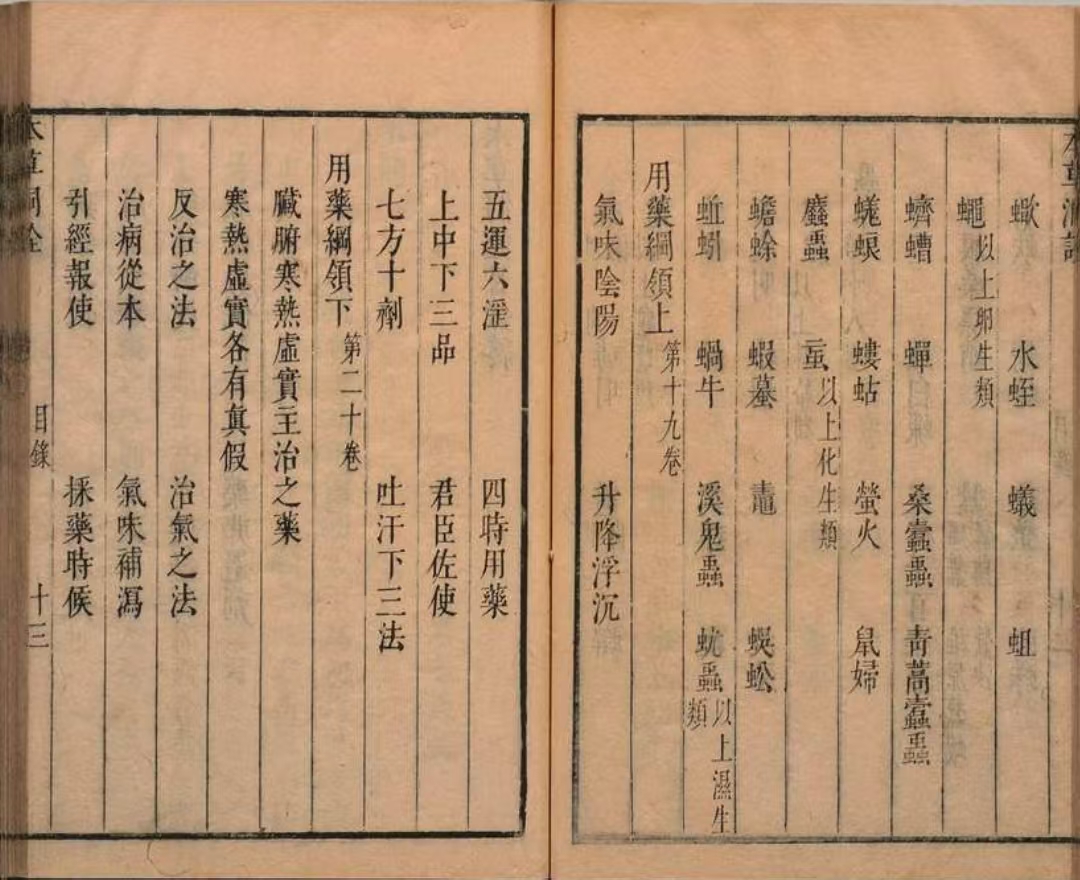 蠍 水蛭 蟻 蛆
蠅 以上卵生類
蠐螬 蟬 桑蠹蟲 青蒿蠹蟲
蜣蜋 螻蛄 螢火 鼠婦
䗪蟲 䖟 以上化生類
蟾蜍 蝦蟇 鼃 蜈蚣
蚯蚓 蝸牛 溪鬼蟲 蚘蟲 以上濕生類
用藥綱領上 第十九卷
氣味陰陽 升降浮沉
五運六淫 四時用藥
上中下三品 君臣佐使
七方十劑 吐汗下三法
用藥綱領下 第二十卷
臟腑寒熱虛實主治之藥
寒熱虛實各有眞假
反治之法 治氣之法
治病從本 氣味補瀉
引經報使 採藥時候
本草洞詮 目錄 十三